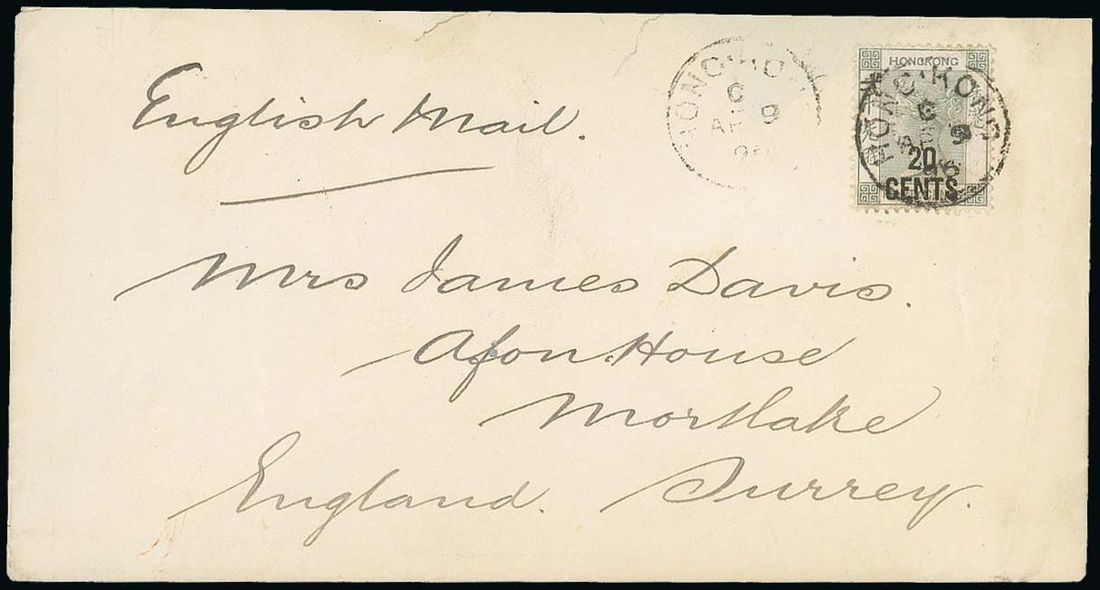 English Mail.
HONG KONG
C
AP 9
96
HONGKONG
HONG KONG
C
AP 9
96
20
CENTS
Mrs James Davis.
Afon House
Mortlake
England. Surrey.